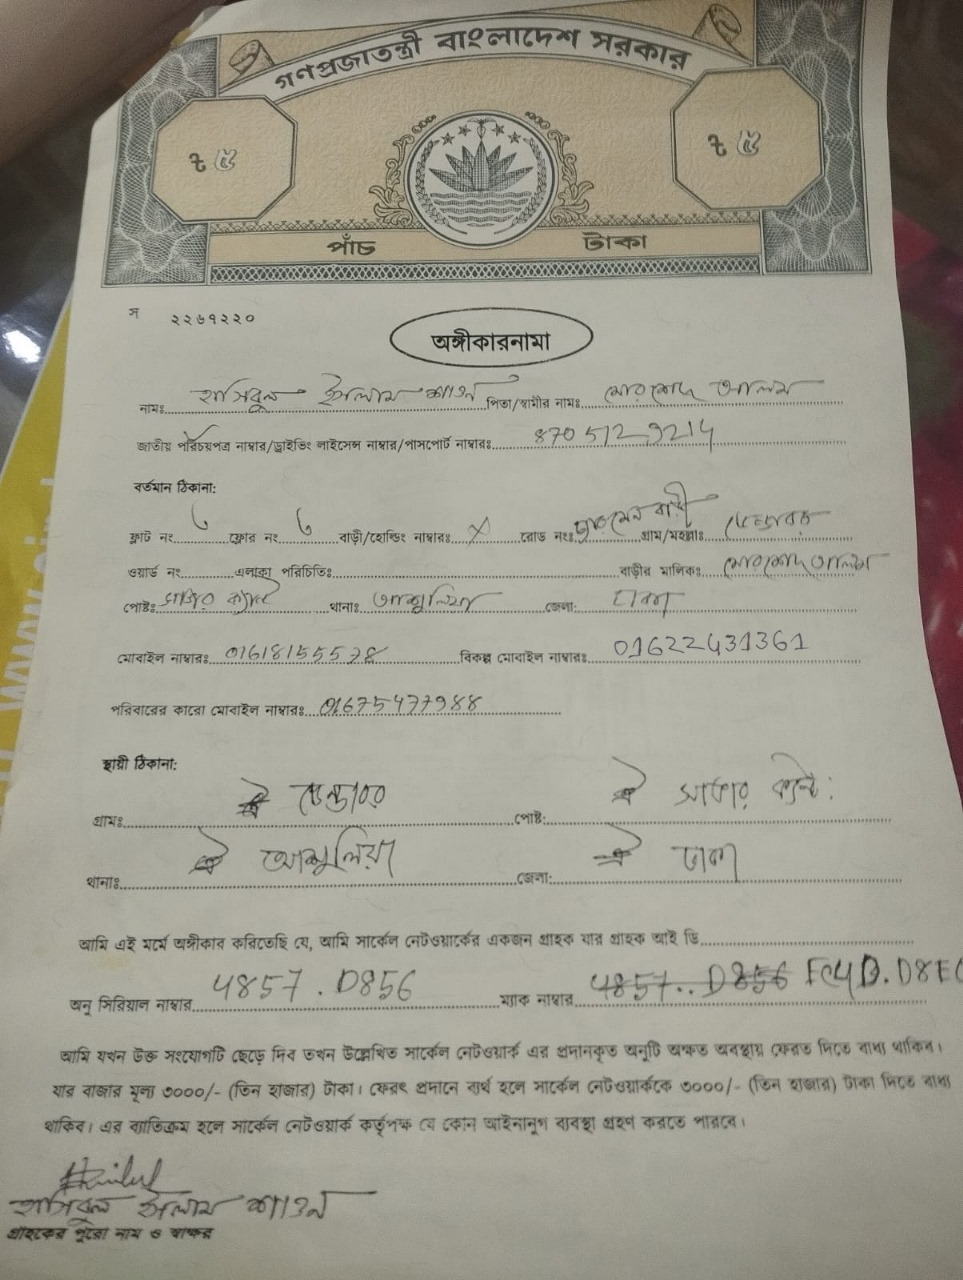 গণপ্রজাতন্ত্রী বাংলাদেশ সরকার
৳ ৫ ৳ ৫
পাঁচ টাকা
স ২২৬৭২২০
অঙ্গীকারনামা
নামঃ হাসিবুল ইসলাম শাওন পিতা/স্বামীর নামঃ মোরশেদ আলম
জাতীয় পরিচয়পত্র নাম্বার/ড্রাইভিং লাইসেন্স নাম্বার/পাসপোর্ট নাম্বারঃ 8705129214
বর্তমান ঠিকানা:
ফ্লাট নং ৬ ফ্লোর নং ৬ বাড়ী/হোল্ডিং নাম্বারঃ X রোড নংঃ গ্রাম/মহল্লাঃ
ওয়ার্ড নং এলাকা পরিচিতিঃ বাড়ীর মালিকঃ মোরশেদ আলম
পোষ্টঃ সাভার ক্যান্ট থানাঃ আশুলিয়া জেলা: ঢাকা
মোবাইল নাম্বারঃ 01618155578 বিকল্প মোবাইল নাম্বারঃ 01622431361
পরিবারের কারো মোবাইল নাম্বারঃ 01675477988
স্থায়ী ঠিকানা:
গ্রামঃ ডেন্ডাবর পোষ্ট: সাভার ক্যান্ট:
থানাঃ আশুলিয়া জেলা: ঢাকা
আমি এই মর্মে অঙ্গীকার করিতেছি যে, আমি সার্কেল নেটওয়ার্কের একজন গ্রাহক যার গ্রাহক আই ডি
অনু সিরিয়াল নাম্বার 4857.D856 ম্যাক নাম্বার 4857..D856 FC4D.D8EC
আমি যখন উক্ত সংযোগটি ছেড়ে দিব তখন উল্লেখিত সার্কেল নেটওয়ার্ক এর প্রদানকৃত অনুটি অক্ষত অবস্থায় ফেরত দিতে বাধ্য থাকিব।
যার বাজার মূল্য ৩০০০/- (তিন হাজার) টাকা। ফেরৎ প্রদানে ব্যর্থ হলে সার্কেল নেটওয়ার্ককে ৩০০০/- (তিন হাজার) টাকা দিতে বাধ্য
থাকিব। এর ব্যতিক্রম হলে সার্কেল নেটওয়ার্ক কর্তৃপক্ষ যে কোন আইনানুগ ব্যবস্থা গ্রহণ করতে পারবে।
হাসিবুল ইসলাম শাওন
গ্রাহকের পুরো নাম ও স্বাক্ষর